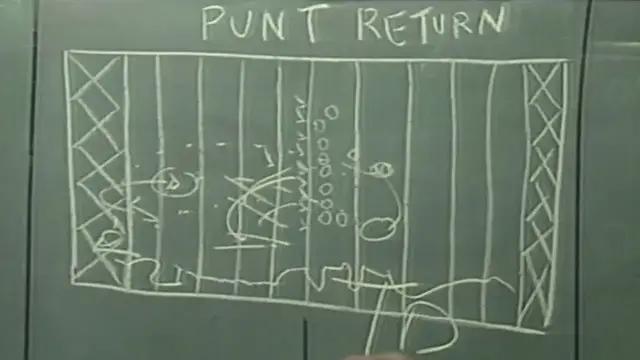 PUNT RETURN